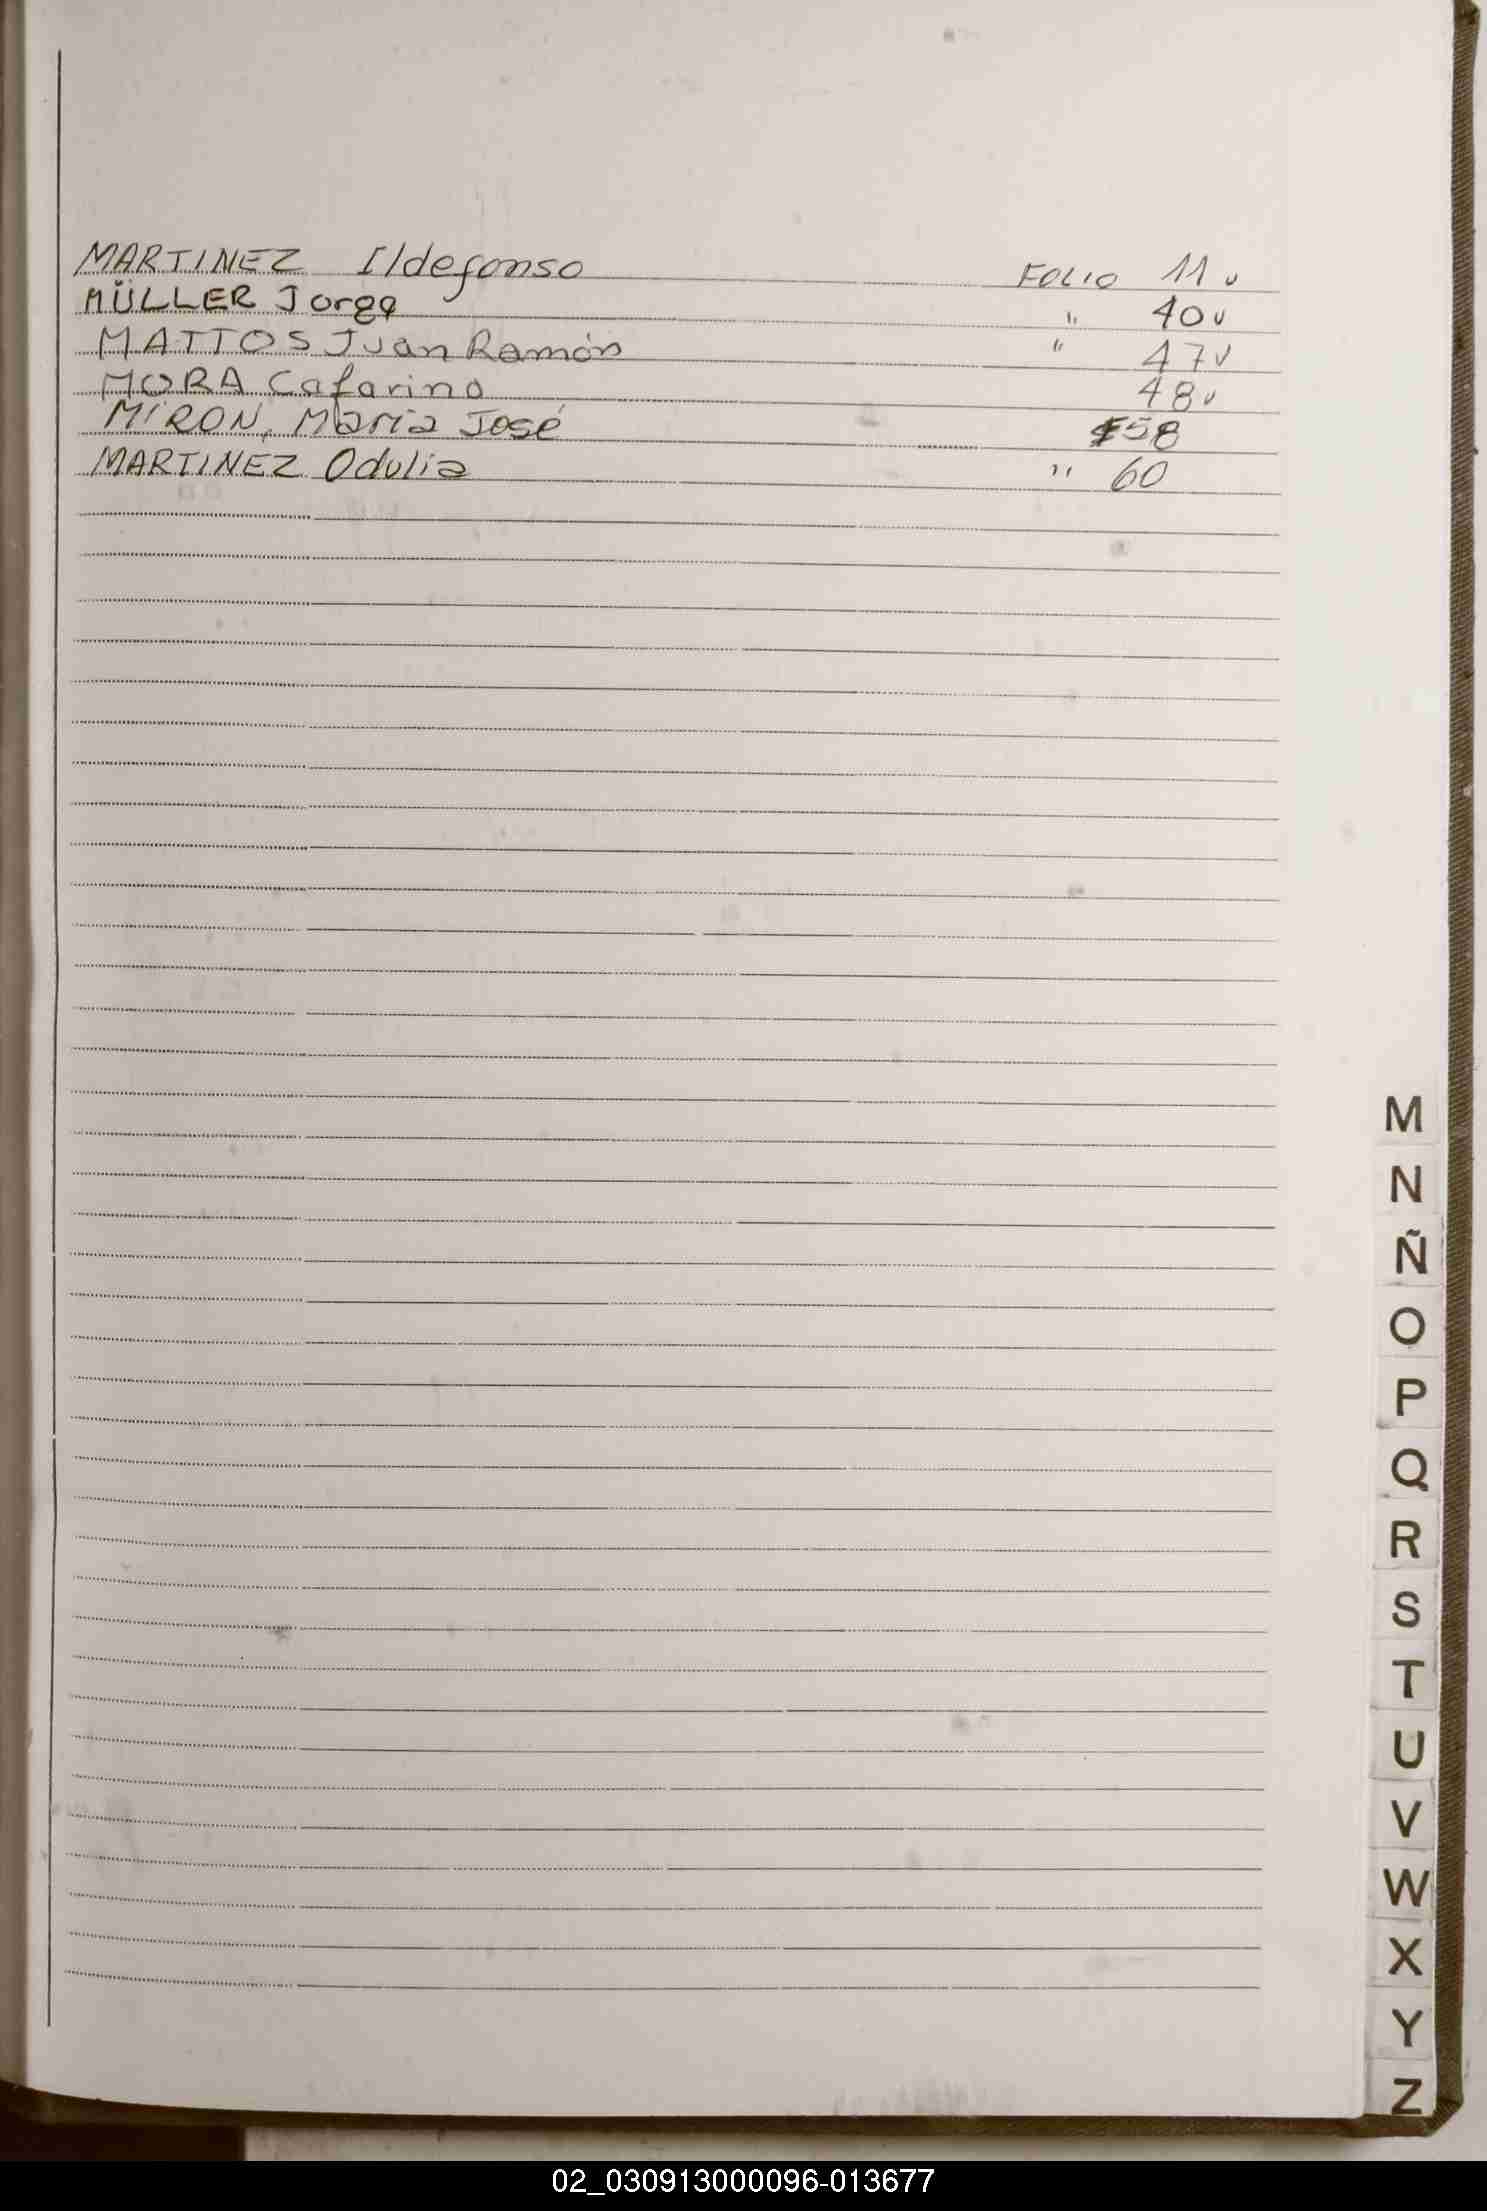 MARTINEZ Ildefonso FOLIO 11 v
MÜLLER Jorge " 40 v
MATTOS Juan Ramón " 47 v
MORA Cafarino 48 v
MIRON, María José 58
MARTINEZ Odulia " 60
M
N
Ñ
O
P
Q
R
S
T
U
V
W
X
Y
Z
02_030913000096-013677